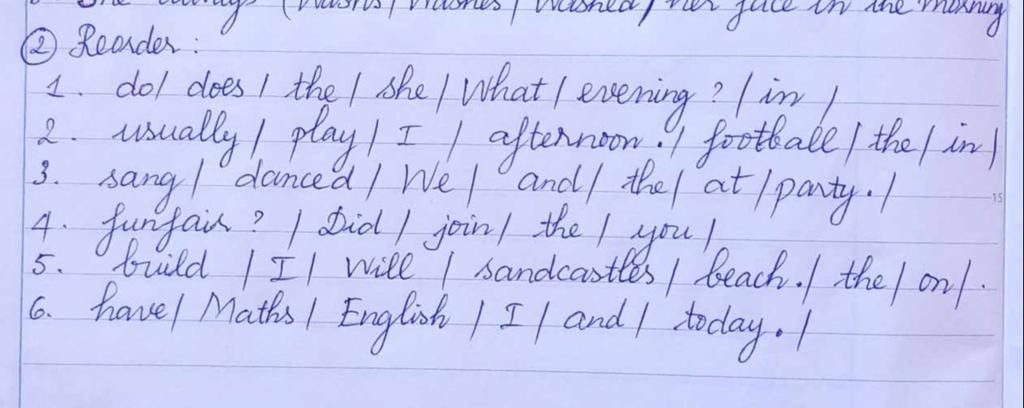 She always (Washs / Washes / Washed / her face in the morning
② Reorder :
1. do / does / the / she / What / evening ? / in /
2. usually / play / I / afternoon . / football / the / in /
3. sang / danced / We / and / the / at / party. /
15
4. funfair ? / Did / join / the / you /
5. build / I / Will / sandcastles / beach. / the / on / .
6. have / Maths / English / I / and / today. /